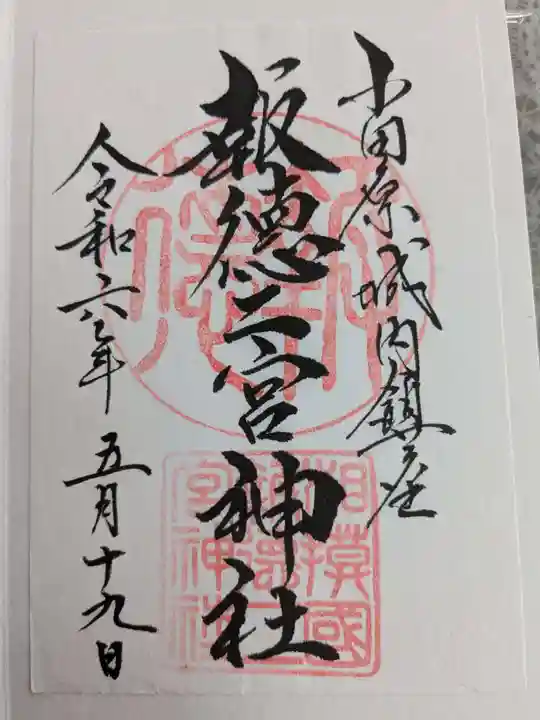 小田原城内鎮座
報徳二宮神社
令和六年 五月十九日
相模國
報德二
宮神社